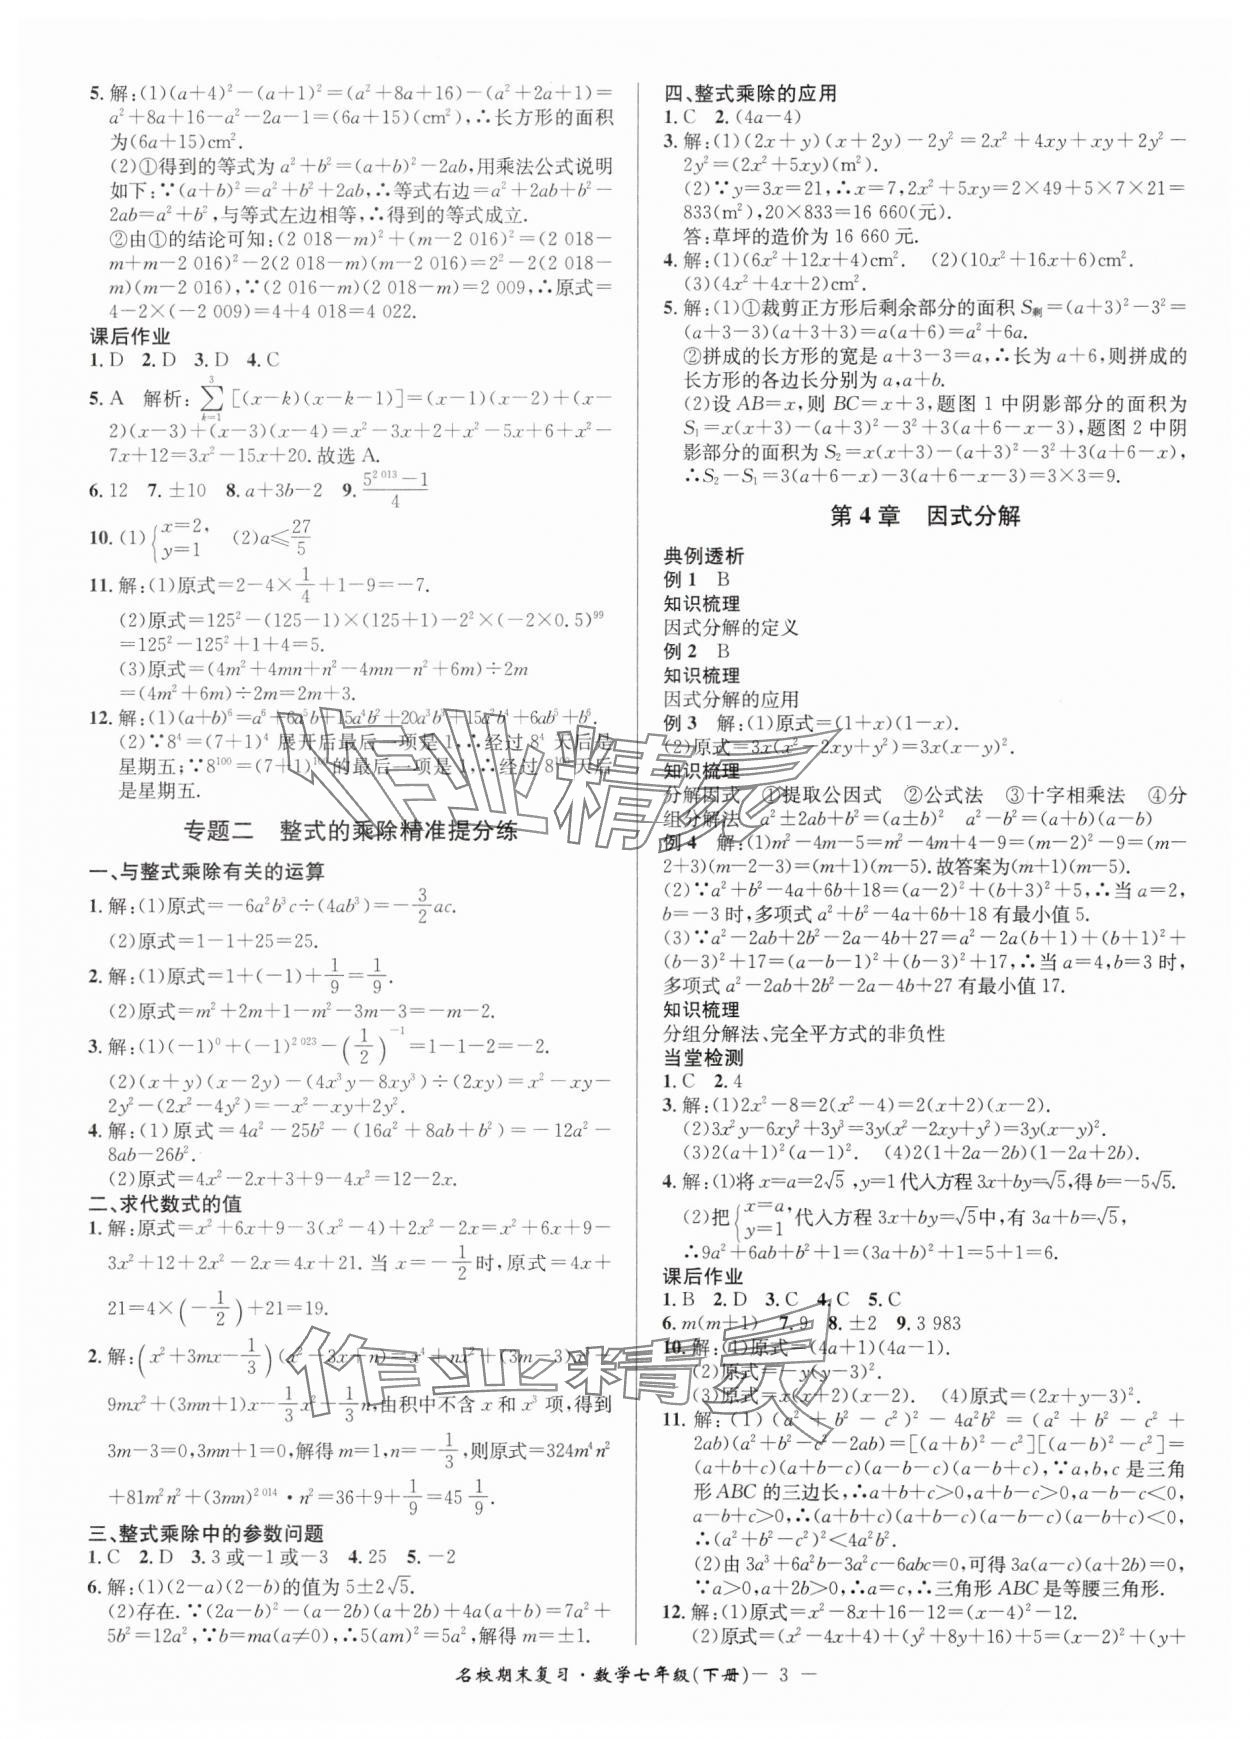 5. 解:(1)(a+4)²-(a+1)²=(a²+8a+16)-(a²+2a+1)=
a²+8a+16-a²-2a-1=(6a+15)(cm²),∴长方形的面积
为(6a+15)cm².
(2)①得到的等式为a²+b²=(a+b)²-2ab,用乘法公式说明
如下:∵(a+b)²=a²+b²+2ab,∴等式右边=a²+2ab+b²-
2ab=a²+b²,与等式左边相等,∴得到的等式成立.
②由①的结论可知:(2 018-m)²+(m-2 016)²=(2 018-
m+m-2 016)²-2(2 018-m)(m-2 016)=2²-2(2 018-
m)(m-2 016),∵(2 016-m)(2 018-m)=2 009,∴原式=
4-2×(-2 009)=4+4 018=4 022.
课后作业
1. D 2. D 3. D 4. C
5. A 解析:∑(k=1→3)[(x-k)(x-k-1)]=(x-1)(x-2)+(x-
2)(x-3)+(x-3)(x-4)=x²-3x+2+x²-5x+6+x²-
7x+12=3x²-15x+20.故选A.
6. 12 7. ±10 8. a+3b-2 9. (5^2 013-1)/4
10. (1){x=2, y=1 (2)a≤27/5
11. 解:(1)原式=2-4×1/4+1-9=-7.
(2)原式=125²-(125-1)×(125+1)-2²×(-2×0.5)⁹⁹
=125²-125²+1+4=5.
(3)原式=(4m²+4mn+n²-4mn-n²+6m)÷2m
=(4m²+6m)÷2m=2m+3.
12. 解:(1)(a+b)⁶=a⁶+6a⁵b+15a⁴b²+20a³b³+15a²b⁴+6ab⁵+b⁶.
(2)∵8⁴=(7+1)⁴展开后最后一项是1,∴经过8⁴天后是
星期五;∵8¹⁰⁰=(7+1)¹⁰⁰的最后一项是1,∴经过8¹⁰⁰天后
是星期五.
专题二 整式的乘除精准提分练
一、与整式乘除有关的运算
1. 解:(1)原式=-6a²b³c÷(4ab³)=-3/2ac.
(2)原式=1-1+25=25.
2. 解:(1)原式=1+(-1)+1/9=1/9.
(2)原式=m²+2m+1-m²-3m-3=-m-2.
3. 解:(1)(-1)⁰+(-1)^2 023-(1/2)⁻¹=1-1-2=-2.
(2)(x+y)(x-2y)-(4x³y-8xy³)÷(2xy)=x²-xy-
2y²-(2x²-4y²)=-x²-xy+2y².
4. 解:(1)原式=4a²-25b²-(16a²+8ab+b²)=-12a²-
8ab-26b².
(2)原式=4x²-2x+3+9-4x²=12-2x.
二、求代数式的值
1. 解:原式=x²+6x+9-3(x²-4)+2x²-2x=x²+6x+9-
3x²+12+2x²-2x=4x+21. 当x=-1/2时,原式=4x+
21=4×(-1/2)+21=19.
2. 解:(x²+3mx-1/3)(x²-3x+n)=x⁴+nx²+(3m-3)x³-
9mx²+(3mn+1)x-1/3x²-1/3n,由积中不含x和x³项,得到
3m-3=0,3mn+1=0,解得m=1,n=-1/3,则原式=324m⁴n²
+81m²n²+(3mn)^2 014·n²=36+9+1/9=45 1/9.
三、整式乘除中的参数问题
1. C 2. D 3. 3或-1或-3 4. 25 5. -2
6. 解:(1)(2-a)(2-b)的值为5±2√5.
(2)存在.∵(2a-b)²-(a-2b)(a+2b)+4a(a+b)=7a²+
5b²=12a²,∵b=ma(a≠0),∴5(am)²=5a²,解得m=±1.
四、整式乘除的应用
1. C 2. (4a-4)
3. 解:(1)(2x+y)(x+2y)-2y²=2x²+4xy+xy+2y²-
2y²=(2x²+5xy)(m²).
(2)∵y=3x=21,∴x=7,2x²+5xy=2×49+5×7×21=
833(m²),20×833=16 660(元).
答:草坪的造价为16 660元.
4. 解:(1)(6x²+12x+4)cm². (2)(10x²+16x+6)cm².
(3)(4x²+4x+2)cm².
5. 解:(1)①裁剪正方形后剩余部分的面积S剩=(a+3)²-3²=
(a+3-3)(a+3+3)=a(a+6)=a²+6a.
②拼成的长方形的宽是a+3-3=a,∴长为a+6,则拼成的
长方形的各边长分别为a,a+b.
(2)设AB=x,则BC=x+3,题图1中阴影部分的面积为
S₁=x(x+3)-(a+3)²-3²+3(a+6-x-3),题图2中阴
影部分的面积为S₂=x(x+3)-(a+3)²-3²+3(a+6-x),
∴S₂-S₁=3(a+6-x)-3(a+6-x-3)=3×3=9.
第4章 因式分解
典例透析
例1 B
知识梳理
因式分解的定义
例2 B
知识梳理
因式分解的应用
例3 解:(1)原式=(1+x)(1-x).
(2)原式=3x(x²-2xy+y²)=3x(x-y)².
知识梳理
分解因式 ①提取公因式 ②公式法 ③十字相乘法 ④分
组分解法 a²±2ab+b²=(a±b)² a²-b²=(a+b)(a-b)
例4 解:(1)m²-4m-5=m²-4m+4-9=(m-2)²-9=(m-
2+3)(m-2-3)=(m+1)(m-5).故答案为(m+1)(m-5).
(2)∵a²+b²-4a+6b+18=(a-2)²+(b+3)²+5,∴当a=2,
b=-3时,多项式a²+b²-4a+6b+18有最小值5.
(3)∵a²-2ab+2b²-2a-4b+27=a²-2a(b+1)+(b+1)²+
(b-3)²+17=(a-b-1)²+(b-3)²+17,∴当a=4,b=3时,
多项式a²-2ab+2b²-2a-4b+27有最小值17.
知识梳理
分组分解法、完全平方式的非负性
当堂检测
1. C 2. 4
3. 解:(1)2x²-8=2(x²-4)=2(x+2)(x-2).
(2)3x²y-6xy²+3y³=3y(x²-2xy+y²)=3y(x-y)².
(3)2(a+1)²(a-1)². (4)2(1+2a-2b)(1-2a+2b).
4. 解:(1)将x=a=2√5,y=1代入方程3x+by=√5,得b=-5√5.
(2)把{x=a, y=1代入方程3x+by=√5中,有3a+b=√5,
∴9a²+6ab+b²+1=(3a+b)²+1=5+1=6.
课后作业
1. B 2. D 3. C 4. C 5. C
6. m(m+1) 7. 9 8. ±2 9. 3 983
10. 解:(1)原式=(4a+1)(4a-1).
(2)原式=-y(y-3)².
(3)原式=x(x+2)(x-2). (4)原式=(2x+y-3)².
11. 解:(1)(a²+b²-c²)²-4a²b²=(a²+b²-c²+
2ab)(a²+b²-c²-2ab)=[(a+b)²-c²][(a-b)²-c²]=
(a+b+c)(a+b-c)(a-b-c)(a-b+c),∵a,b,c是三角
形ABC的三边长,∴a+b+c>0,a+b-c>0,a-b-c<0,
a-b+c>0,∴(a+b+c)(a+b-c)(a-b-c)(a-b+c)<0,
∴(a²+b²-c²)²<4a²b².
(2)由3a³+6a²b-3a²c-6abc=0,可得3a(a-c)(a+2b)=0,
∵a>0,a+2b>0,∴a=c,∴三角形ABC是等腰三角形.
12. 解:(1)原式=x²-8x+16-12=(x-4)²-12.
(2)原式=(x²-4x+4)+(y²+8y+16)+5=(x-2)²+(y+
名校期末复习·数学七年级(下册)— 3 —
作业精灵
作业精灵